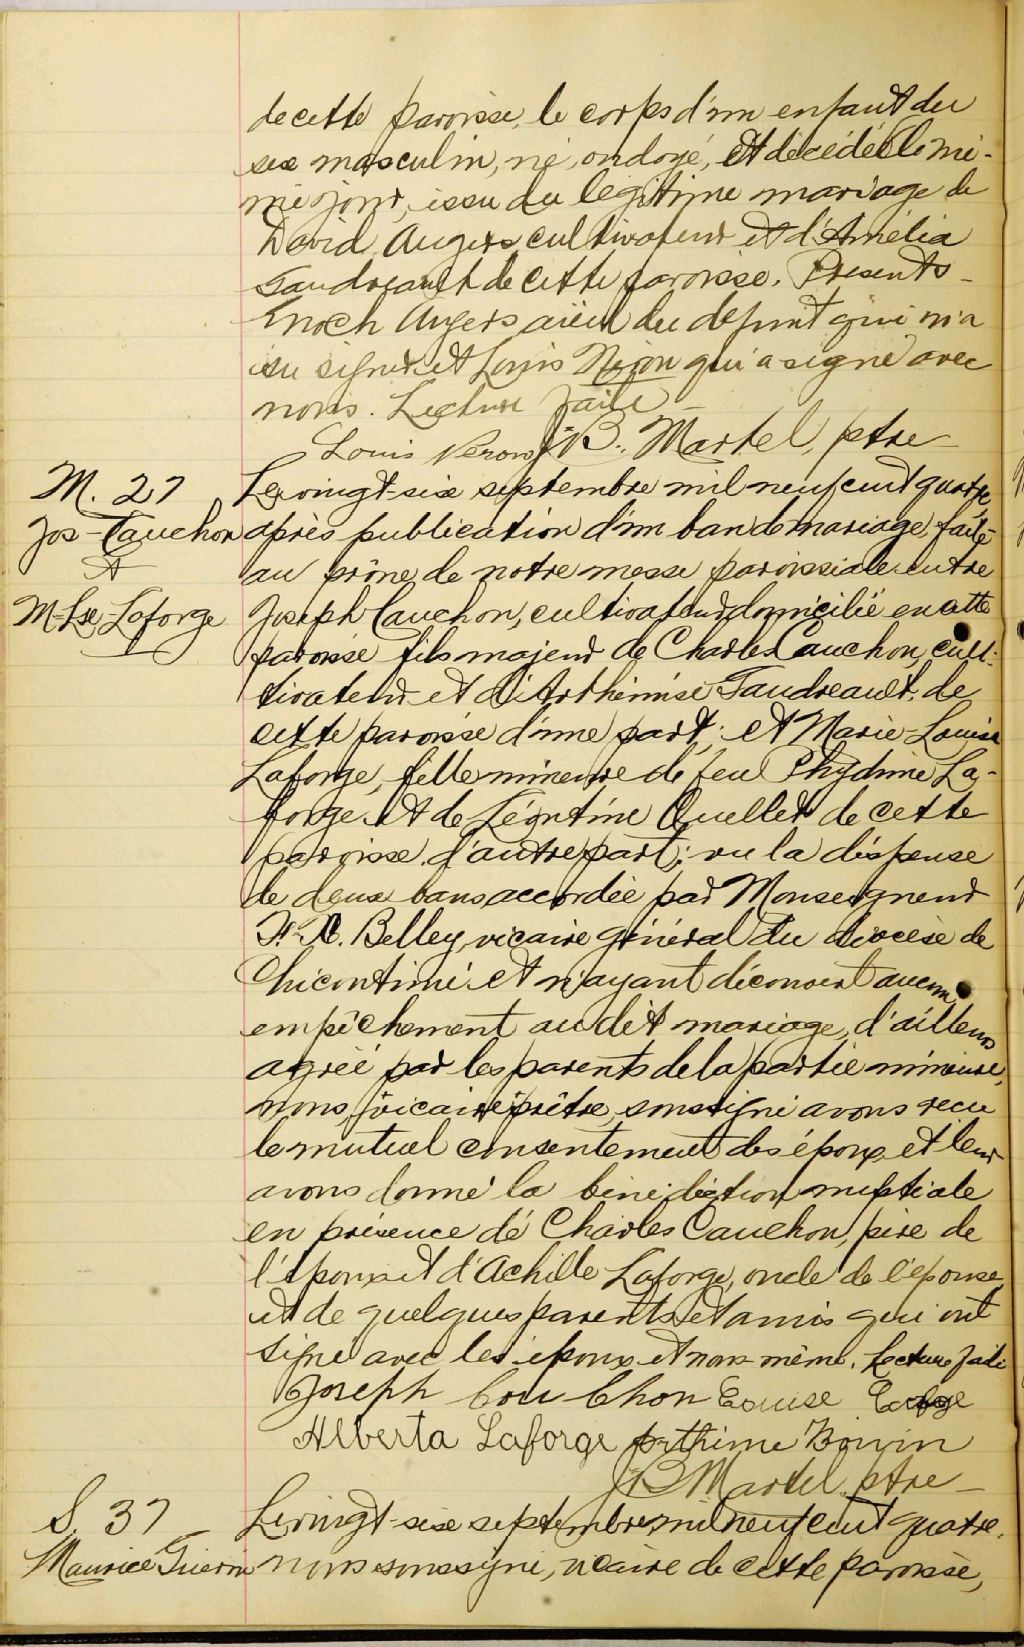 de cette paroisse, le corps d'un enfant du
sexe masculin, né, ondoyé, et décédé le mê-
me jour, issu du légitime mariage de
David Angers cultivateur et d'Amélia
Gaudreault de cette paroisse. Présents
Enoch Angers aïeul du défunt qui n'a
su signer et Louis Néron qui a signé avec
nous. Lecture faite
Louis Neron J.B. Martel, ptre
M. 27
Jos-Cauchon
et
M-Lse Laforge
Le vingt-six septembre mil neuf cent quatre,
après publication d'un ban de mariage, faite
au prône de notre messe paroissiale entre
Joseph Cauchon, cultivateur domicilié en cette
paroisse fils majeur de Charles Cauchon, cul-
tivateur et d'Arthémise Gaudreault, de
cette paroisse d'une part; et Marie Louise
Laforge, fille mineure de feu Phydime La-
forge et de Léontine Ouellet de cette
paroisse d'autre part; vu la dispense
de deux bans accordée par Monseigneur
F. X. Belley, vicaire général du diocèse de
Chicoutimi et n'ayant découvert aucun
empêchement au dit mariage, d'ailleurs
agréé par les parents de la partie mineure,
nous, vicaire prêtre, soussigné avons reçu
le mutuel consentement des époux et leur
avons donné la bénédiction nuptiale
en présence de Charles Cauchon, père de
l'époux et d'Achille Laforge, oncle de l'épouse
et de quelques parents et amis qui ont
signé avec les époux et nous-même. Lecture faite
Joseph Cou Chon Louise
Alberta Laforge
J B Martel ptre
S. 37
Maurice
Le vingt-six septembre, mil neuf cent quatre,
nous soussigné, vicaire de cette paroisse,